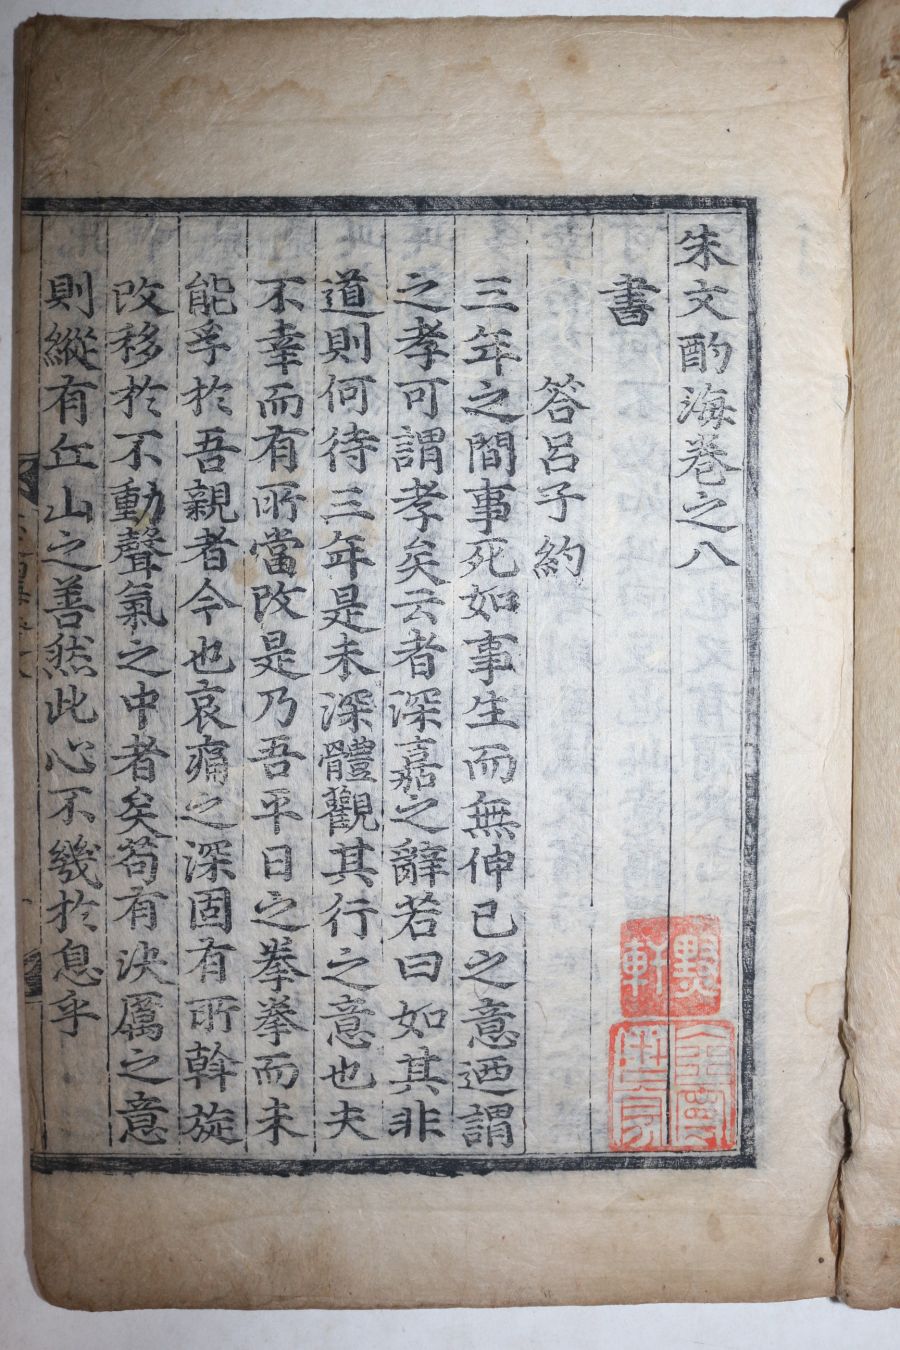 朱文酌海卷之八
書
答呂子約
三年之間事死如事生而無伸己之意迺謂
之孝可謂孝矣云者深嘉之辭若曰如其非
道則何待三年是未深體觀其行之意也夫
不幸而有所當改是乃吾平日之拳拳而未
能孚於吾親者今也哀痛之深固有所斡旋
改移於不動聲氣之中者矣苟有決厲之意
則縱有丘山之善然此心不幾於息乎
軒